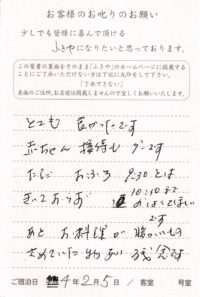 お客様のお叱りのお願い
少しでも皆様に喜んで頂ける
ふきやになりたいと思っております。
この葉書の裏面をそのまま「ふきや」のホームページに掲載する
ことにご了承いただけない方は下記に丸印をして下さい。
「了承できない」
表面のご住所、お名前は掲載しませんので宜しくお願いいたします。
とても 良かったです
赤ちゃん 接待も
ただ おふろ 9:30とは
きいておらず 10:30まで
です
あと お料理が
残念です
ご宿泊日 4年2月5日／客室 号室